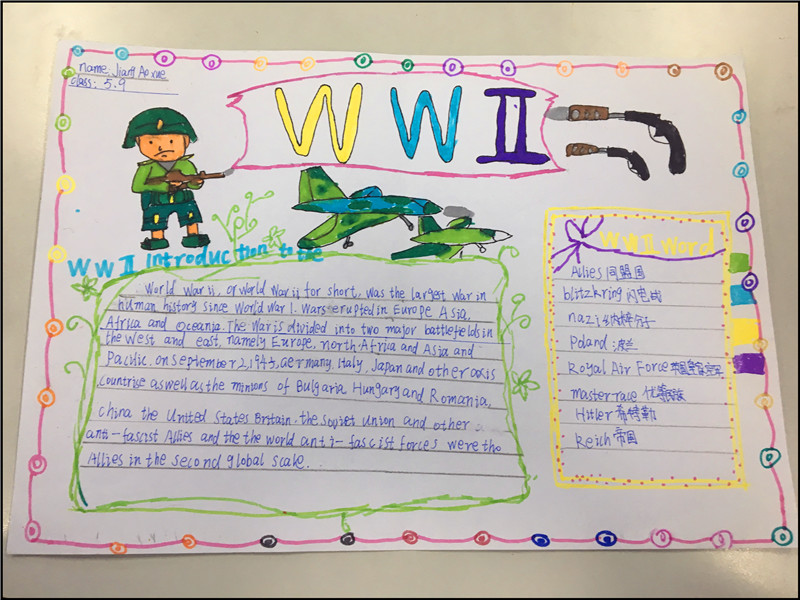 name: Jiang Ao xue
class: 5.9
WWII
WWII introduction to the
World War ii, or World War ii for short, was the largest war in
human history since World War I. Wars erupted in Europe Asia,
Africa and Oceania. The War is divided into two major battlefields in
the West and east, namely Europe. north Africa and Asia and
Pacific. on september 2,1945, Germany. Italy, Japan and other axis
countrise as well as the minions of Bulgaria Hungary and Romania,
china the United States Britain. the Soviet Union and other
anti-fascist Allies and the the world anti-fascist forces were the
Allies in the second global scale.
WWII Word
Allies 同盟国
blitzkring 闪电战
nazi 纳粹分子
Poland 波兰
Royal Air Force 英国皇家空军
master race
Hitler 希特勒
Reich 帝国